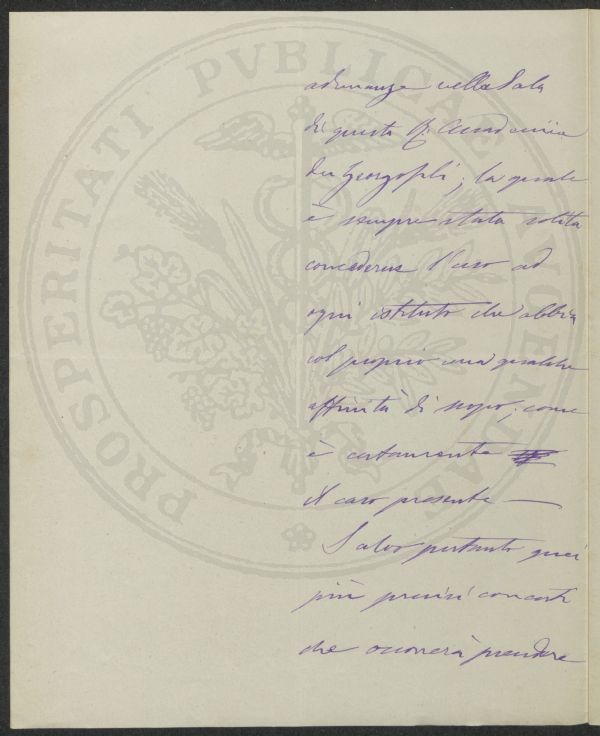 PROSPERITATI PVBLICAE AVGENDAE
adunanze nella Sala
di questa R. Accademia
dei Georgofili; la quale
è sempre stata solita
concederne l'uso ad
ogni istituto che abbia
col proprio una qualche
affinità di scopo; come
è certamente
il caso presente —
Salvo pertanto quei
più precisi concerti
che occorrerà prendere